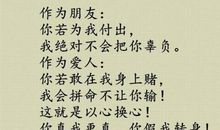 作为朋友：
你若为我付出，
我绝对不会把你辜负。
作为爱人：
你若敢在我身上赌，
我会拼命不让你输！
这就是以心换心！
你真我更真，你假我转身！